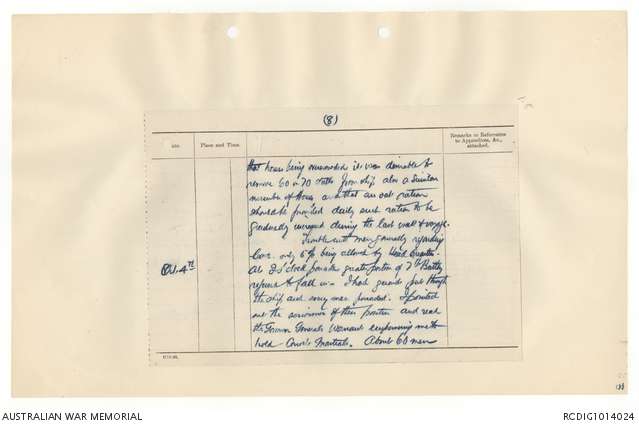 (8)
Date. Place and Time. Remarks or References to Appendices, &c., attached.
that horses being it was desirable to
remove 60 or 70 from ship also a similar
number of and that an oat ration
should be provided daily such ration to be
gradually increased during the last week of voyage.
Trouble with men generally regarding
5/- being allowed by Head Quarters.
Oct. 4th At 2 o'clock parade greater portion of 7th Battery
refused to fall in. I had guards put through
the ship and every man paraded. I pointed
out the seriousness of their position and read
the Governor Generals Warrant empowering me to
hold Courts Martials. About 60 men
AUSTRALIAN WAR MEMORIAL
RCDIG1014024